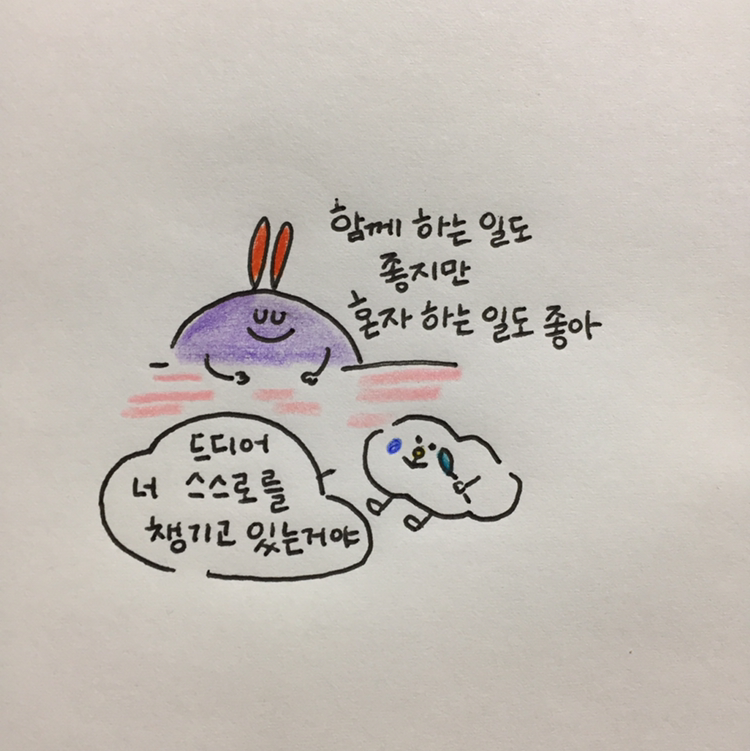 함께 하는 일도
좋지만
혼자 하는 일도 좋아
드디어
너 스스로를
챙기고 있는거야